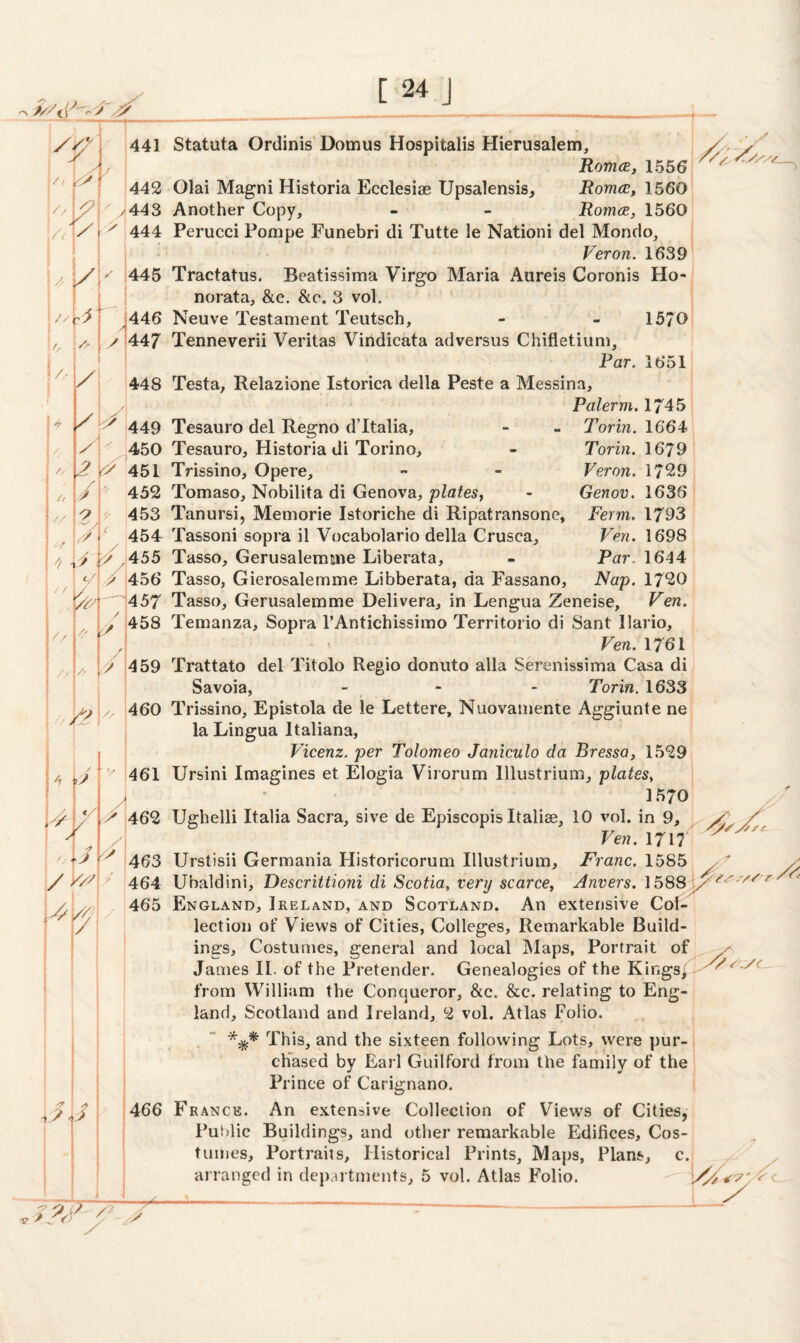 [ 24 ]
441 Statuta Ordinis Domus Hospitalis Hierusalem,
Romæ, 1556
442 Olai Magni Historia Ecclesiæ Upsalensis, Romæ, 1560
443 Another Copy, - - Romæ, 1560
444 Perucci Pompe Funebri di Tutte le Nationi del Mondo,
Veron. 1639
445 Tractatus. Beatissima Virgo Maria Aureis Coronis Ho-
norata, &c. &c. 3 vol.
446 Neuve Testament Teutsch, - - 1570
447 Tenneverii Veritas Vindicata adversus Chifletium,
Par. 1651
448 Testa, Relazione Istorica della Peste a Messina,
Palerm. 1745
449 Tesauro del Regno d'Italia, - - Torin. 1664
450 Tesauro, Historia di Torino, - Torin. 1679
451 Trissino, Opere, - - Veron. 1729
452 Tomaso, Nobilita di Genova, plates, - Genov. 1636
453 Tanursi, Memorie Istoriche di Ripatransone, Ferm. 1793
454 Tassoni sopra il Vocabolario della Crusca, Ven. 1698
455 Tasso, Gerusalemme Liberata, - Par. 1644
456 Tasso, Gierosalemme Libberata, da Fassano, Nap. 1720
457 Tasso, Gerusalemme Delivera, in Lengua Zeneise, Ven.
458 Temanza, Sopra l'Antichissimo Territorio di Sant Ilario,
Ven. 1761
459 Trattato del Titolo Regio donuto alla Serenissima Casa di
Savoia, - - - Torin. 1633
460 Trissino, Epistola de le Lettere, Nuovamente Aggiunte ne
la Lingua Italiana,
Vicenz. per Tolomeo Janiculo da Bressa, 1529
461 Ursini Imagines et Elogia Virorum Illustrium, plates,
1570
462 Ughelli Italia Sacra, sive de Episcopis Italiæ, 10 vol. in 9,
Ven. 1717
463 Urstisii Germania Historicorum Illustrium, Franc. 1585
464 Ubaldini, Descrittioni di Scotia, very scarce, Anvers. 1588
465 England, Ireland, and Scotland. An extensive Col-
lection of Views of Cities, Colleges, Remarkable Build-
ings, Costumes, general and local Maps, Portrait of
James II. of the Pretender. Genealogies of the Kings,
from William the Conqueror, &c. &c. relating to Eng-
land, Scotland and Ireland, 2 vol. Atlas Folio.
*** This, and the sixteen following Lots, were pur-
chased by Earl Guilford from the family of the
Prince of Carignano.
466 France. An extensive Collection of Views of Cities,
Public Buildings, and other remarkable Edifices, Cos-
tumes, Portraits, Historical Prints, Maps, Plans, c.
arranged in departments, 5 vol. Atlas Folio.